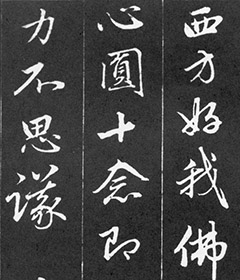 西方好我佛
心圓十念即
力不思議